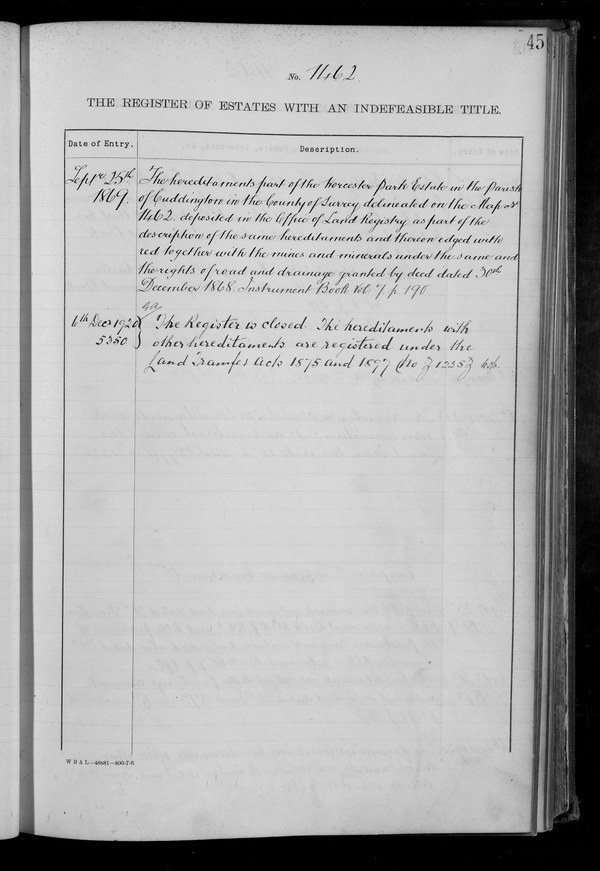 45
No. 1462
THE REGISTER OF ESTATES WITH AN INDEFEASIBLE TITLE.
Date of Entry.
Description.
25th
1869.
The hereditaments part of the Worcester Park Estate in the Parish
of Cuddington in the County of Surrey delineated on the Map No
1462 deposited in the Office of Land Registry as part of the
description of the same hereditaments and thereon edged with
red together with the mines and minerals under the same and
the rights of road and drainage granted by deed dated 30th
December 1868. Instrument Book Vol 7 p. 190
6th Decr 1920
5350
The Register is closed. The hereditaments with
other hereditaments are registered under the
Land Transfer Acts 1875 and 1897 (No
W B & L—46881—800-7-6